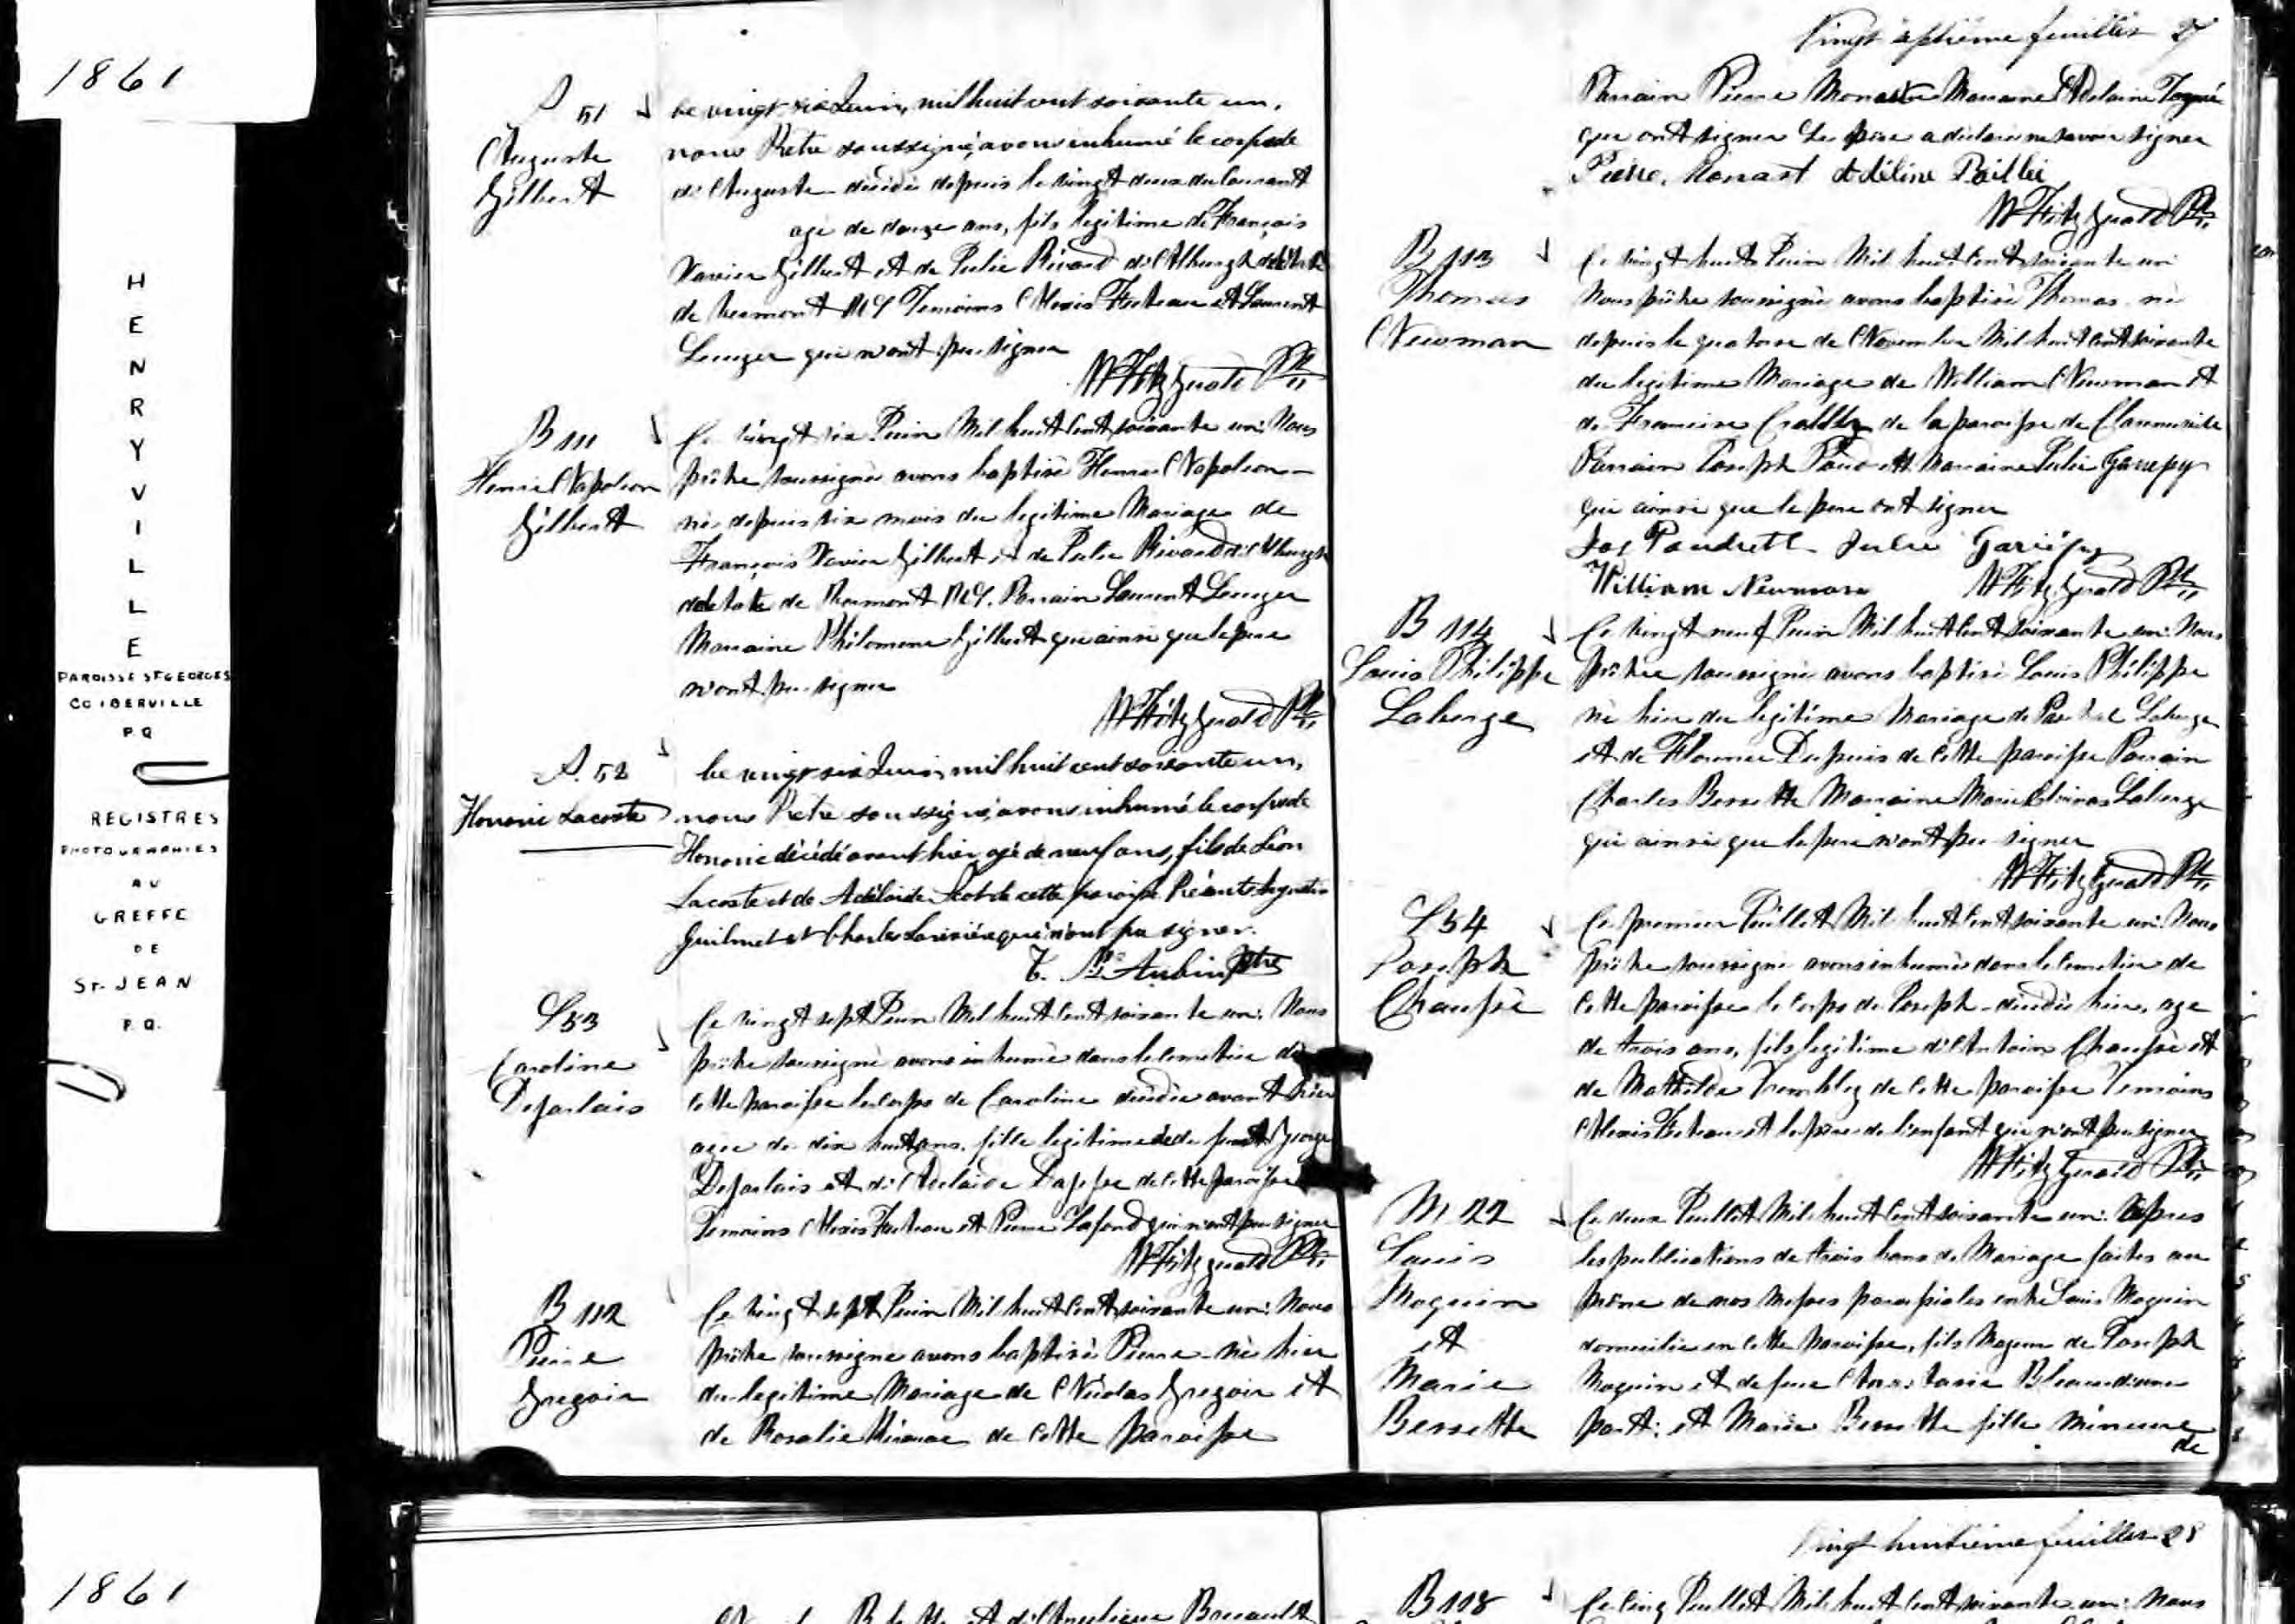 1861
HENRYVILLE
PAROISSE ST GEORGES
CO IBERVILLE
P Q
REGISTRES
PHOTOGRAPHIES
AU
GREFFE
DE
ST. JEAN
P.Q.
1861
S 51
Auguste
Gilbert
Le vingt six Juin, mil huit cent soixante un,
nous Prêtre soussigné, avons inhumé le corps de
d'Auguste décédé depuis le vingt deux du courant
agé de douze ans, fils legitime de François
Xavier Gilbert et de Julie Rivard d'Alburgh
de Vermont Temoins Alexis Feuteau et Laurent
qui n'ont pu signer
W Fitzgerald Ptre
B 111
Henri Napoleon
Gilbert
Ce vingt six Juin Mil huit Cent soixante un: Nous
prêtre soussigné avons baptisé Henri Napoleon
né depuis six mois du legitime Mariage de
François Xavier Gilbert et de Julie Rivard d'Alburgh
de Vermont Parrain Laurent
Marraine Philomene Gilbert qui ainsi que le père
n'ont pu signer
W Fitzgerald Ptre
S. 52
Honorie Lacoste
Le vingt six Juin, mil huit cent soixante un,
nous Prêtre soussigné, avons inhumé le corps de
Honorie décédé avant hier agé de neuf ans, fils de Léon
Lacoste et de Adélaide de cette paroisse Présents
Guilmet et Charles qui n'ont pu signer.
St Aubin Ptre
S 53
Caroline
Dejarlais
Ce vingt sept Juin Mil huit Cent soixante un: Nous
prêtre soussigné avons inhumé dans le Cemetiere de
Cette paroisse le Corps de Caroline décédée avant hier
agée de dix huit ans fille legitime de feu George
Dejarlais et d'Adelaide de Cette paroisse
Temoins Alexis Feuteau et Pierre Lafond qui n'ont pu signer
W Fitzgerald Ptre
B 112
Pierre
Gregoir
Ce vingt sept Juin Mil huit Cent soixante un: Nous
prêtre soussigné avons baptisé Pierre né hier
du legitime Mariage de Nicolas Gregoir et
de Rosalie de Cette paroisse
Vingt septième feuillet 27
Parrain Pierre Monast Marraine
qui ont signer Le père a déclaré ne savoir signer
Pierre Monast Adéline Paillé
W Fitzgerald Ptre
B 113
Thomas
Newman
Ce vingt huit Juin Mil huit Cent soixante un
Nous prêtre soussigné avons baptisé Thomas né
depuis le quatorse de Novembre Mil huit Cent soixante
du legitime Mariage de William Newman et
de de la paroisse de Clarenceville
Parrain Joseph Marraine Julie Gariepy
qui ainsi que le pere ont signer
Jos Paudrett Julie Gariépy
William Newman W Fitzgerald Ptre
B 114
Louis Philippe
Laberge
Ce vingt neuf Juin Mil huit Cent soixante un: Nous
Prêtre soussigné avons baptisé Louis Philippe
né hier du legitime Mariage de Laberge
et de Florence Dupuis de Cette paroisse Parrain
Charles Bessette Marraine Marie Laberge
qui ainsi que le pere n'ont pu signer
W Fitzgerald Ptre
S 54
Joseph
Chaussé
Ce premier Juillet Mil huit Cent soixante un: Nous
prêtre soussigné avons inhumé dans le Cemetiere de
Cette paroisse le Corps de Joseph décédé hier, age
de trois ans, fils legitime d'Antoin Chaussé et
de Mathilde Tremblez de Cette paroisse Temoins
Alexis Feuteau et le père de l'enfant qui n'ont pu signer
W Fitzgerald Ptre
M 22
Louis
Moquin
et
Marie
Bessette
Ce deux Juillet Mil huit Cent soixante un: Après
les publications de trois bans de Mariage faites au
prône de nos Messes paroissiales entre Louis Moquin
domicilié en Cette Paroisse, fils Majeur de Joseph
Moquin et de feue Anastasie d'une
part; et Marie Bessette fille Mineure
de
Vingt huitième feuillet 28
B 118
Ce Cinq Juillet Mil huit Cent soixante un: Nous